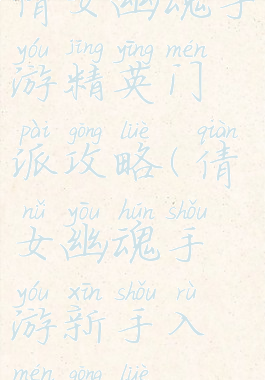 倩女幽魂手
yóu jīng yīng mén
游精英门
pài gōng lüè qiàn
派攻略(倩
nǚ yōu hún shǒu
女幽魂手
yóu xīn shǒu rù
游新手入
mén gōng lüè